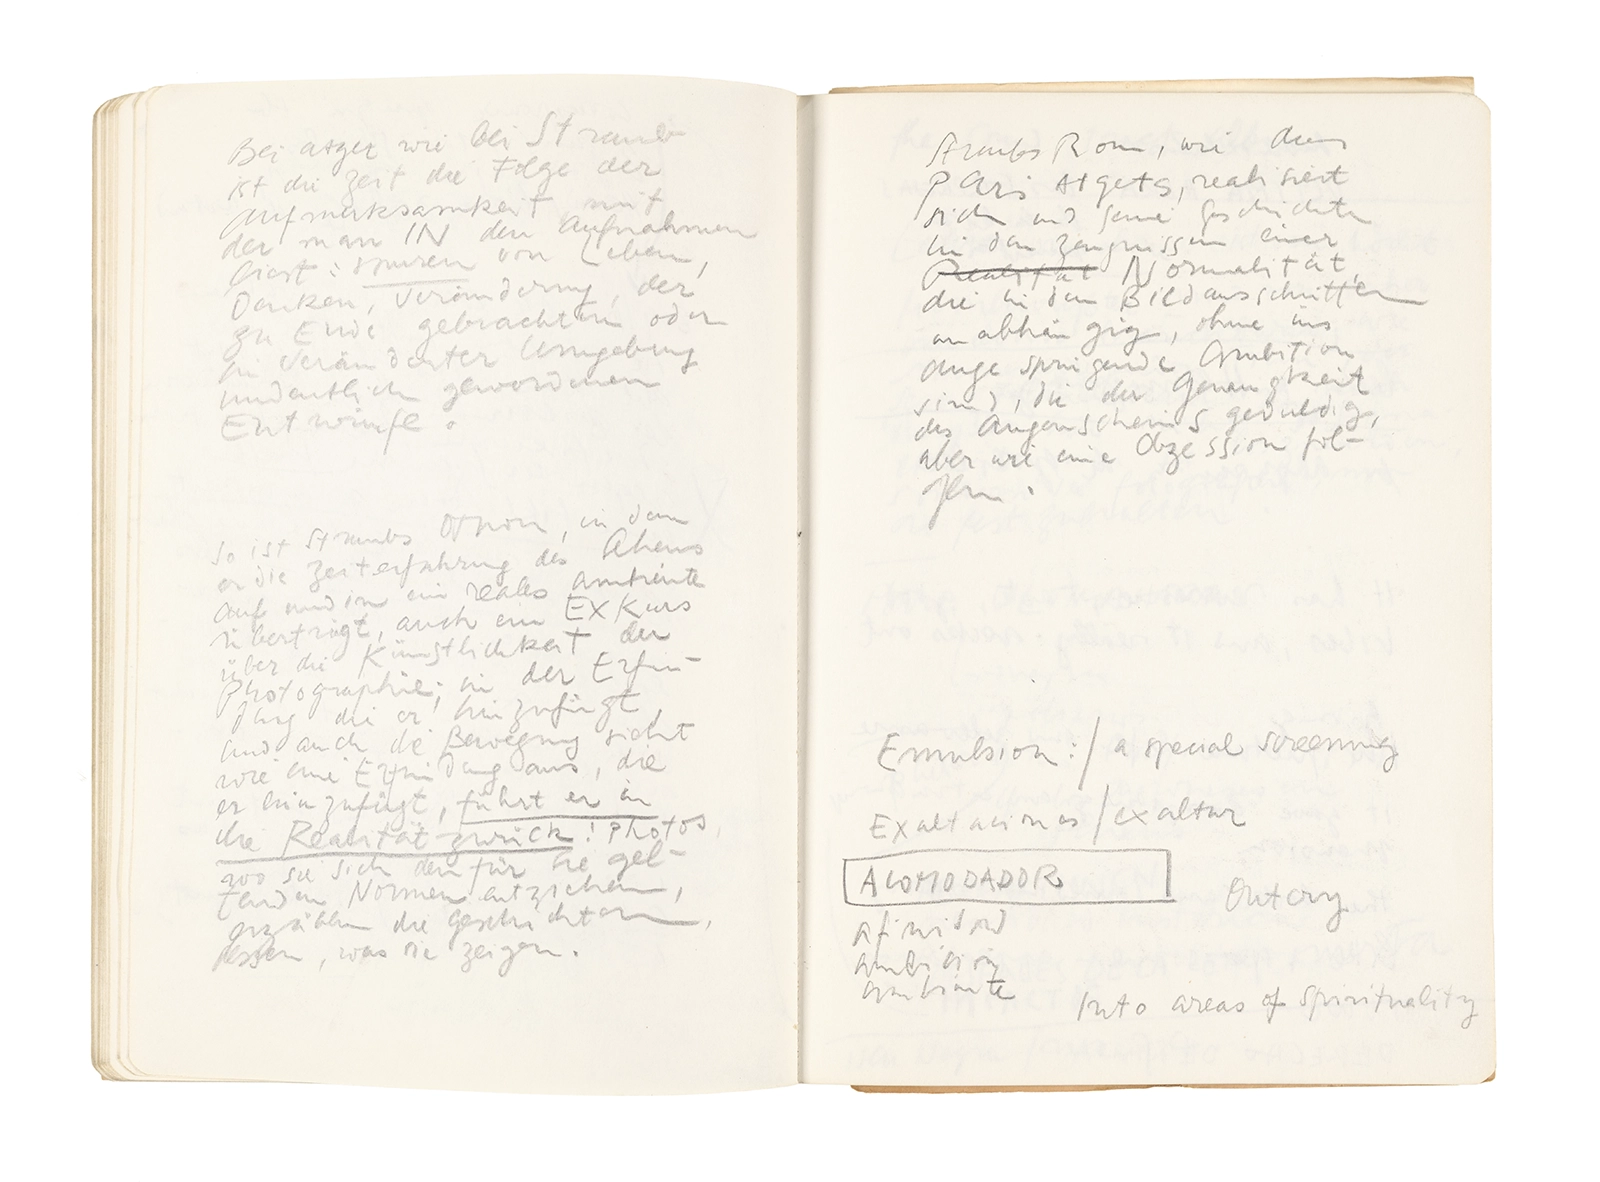 Bei Atget wie bei Straub
ist die Zeit die Folge der
Aufmerksamkeit mit
der man IN den Aufnahmen
liest: Spuren von Leben,
Denken, Veränderung, der
zu Ende gebrachten oder
in veränderter Umgebung
undeutlich gewordenen
Entwürfe.
So ist Straubs Option, in dem
er die Zeiterfahrung des Gehens
auf und in ein reales Ambiente
überträgt, auch ein EXKurs
über die Künstlichkeit der
Photographie; in der Erfin-
dung die er hinzufügt,
und auch die Bewegung sieht
wie eine Erfindung aus, die
er hinzufügt, führt er in
die Realität zurück! Photos,
wo sie sich den für sie gel-
tenden Normen entziehen,
erzählen die Geschichten
dessen, was sie zeigen.
Straubs Rom, wie das
Paris Atgets, realisiert
sich und seine Geschichte
in den Zeugnissen einer
Realität Normalität,
die in den Bildausschnitten
unabhängig, ohne ins
Auge springende Ambition
sind, die der Genauigkeit
des Augenscheins geduldig,
aber wie eine Obsession fol-
gen.
Emulsion:/ a special screening
Exaltaciones/exaltar
ACOMODADOR
Outcry
afinidad
ambición
ambiente
Into areas of spirituality